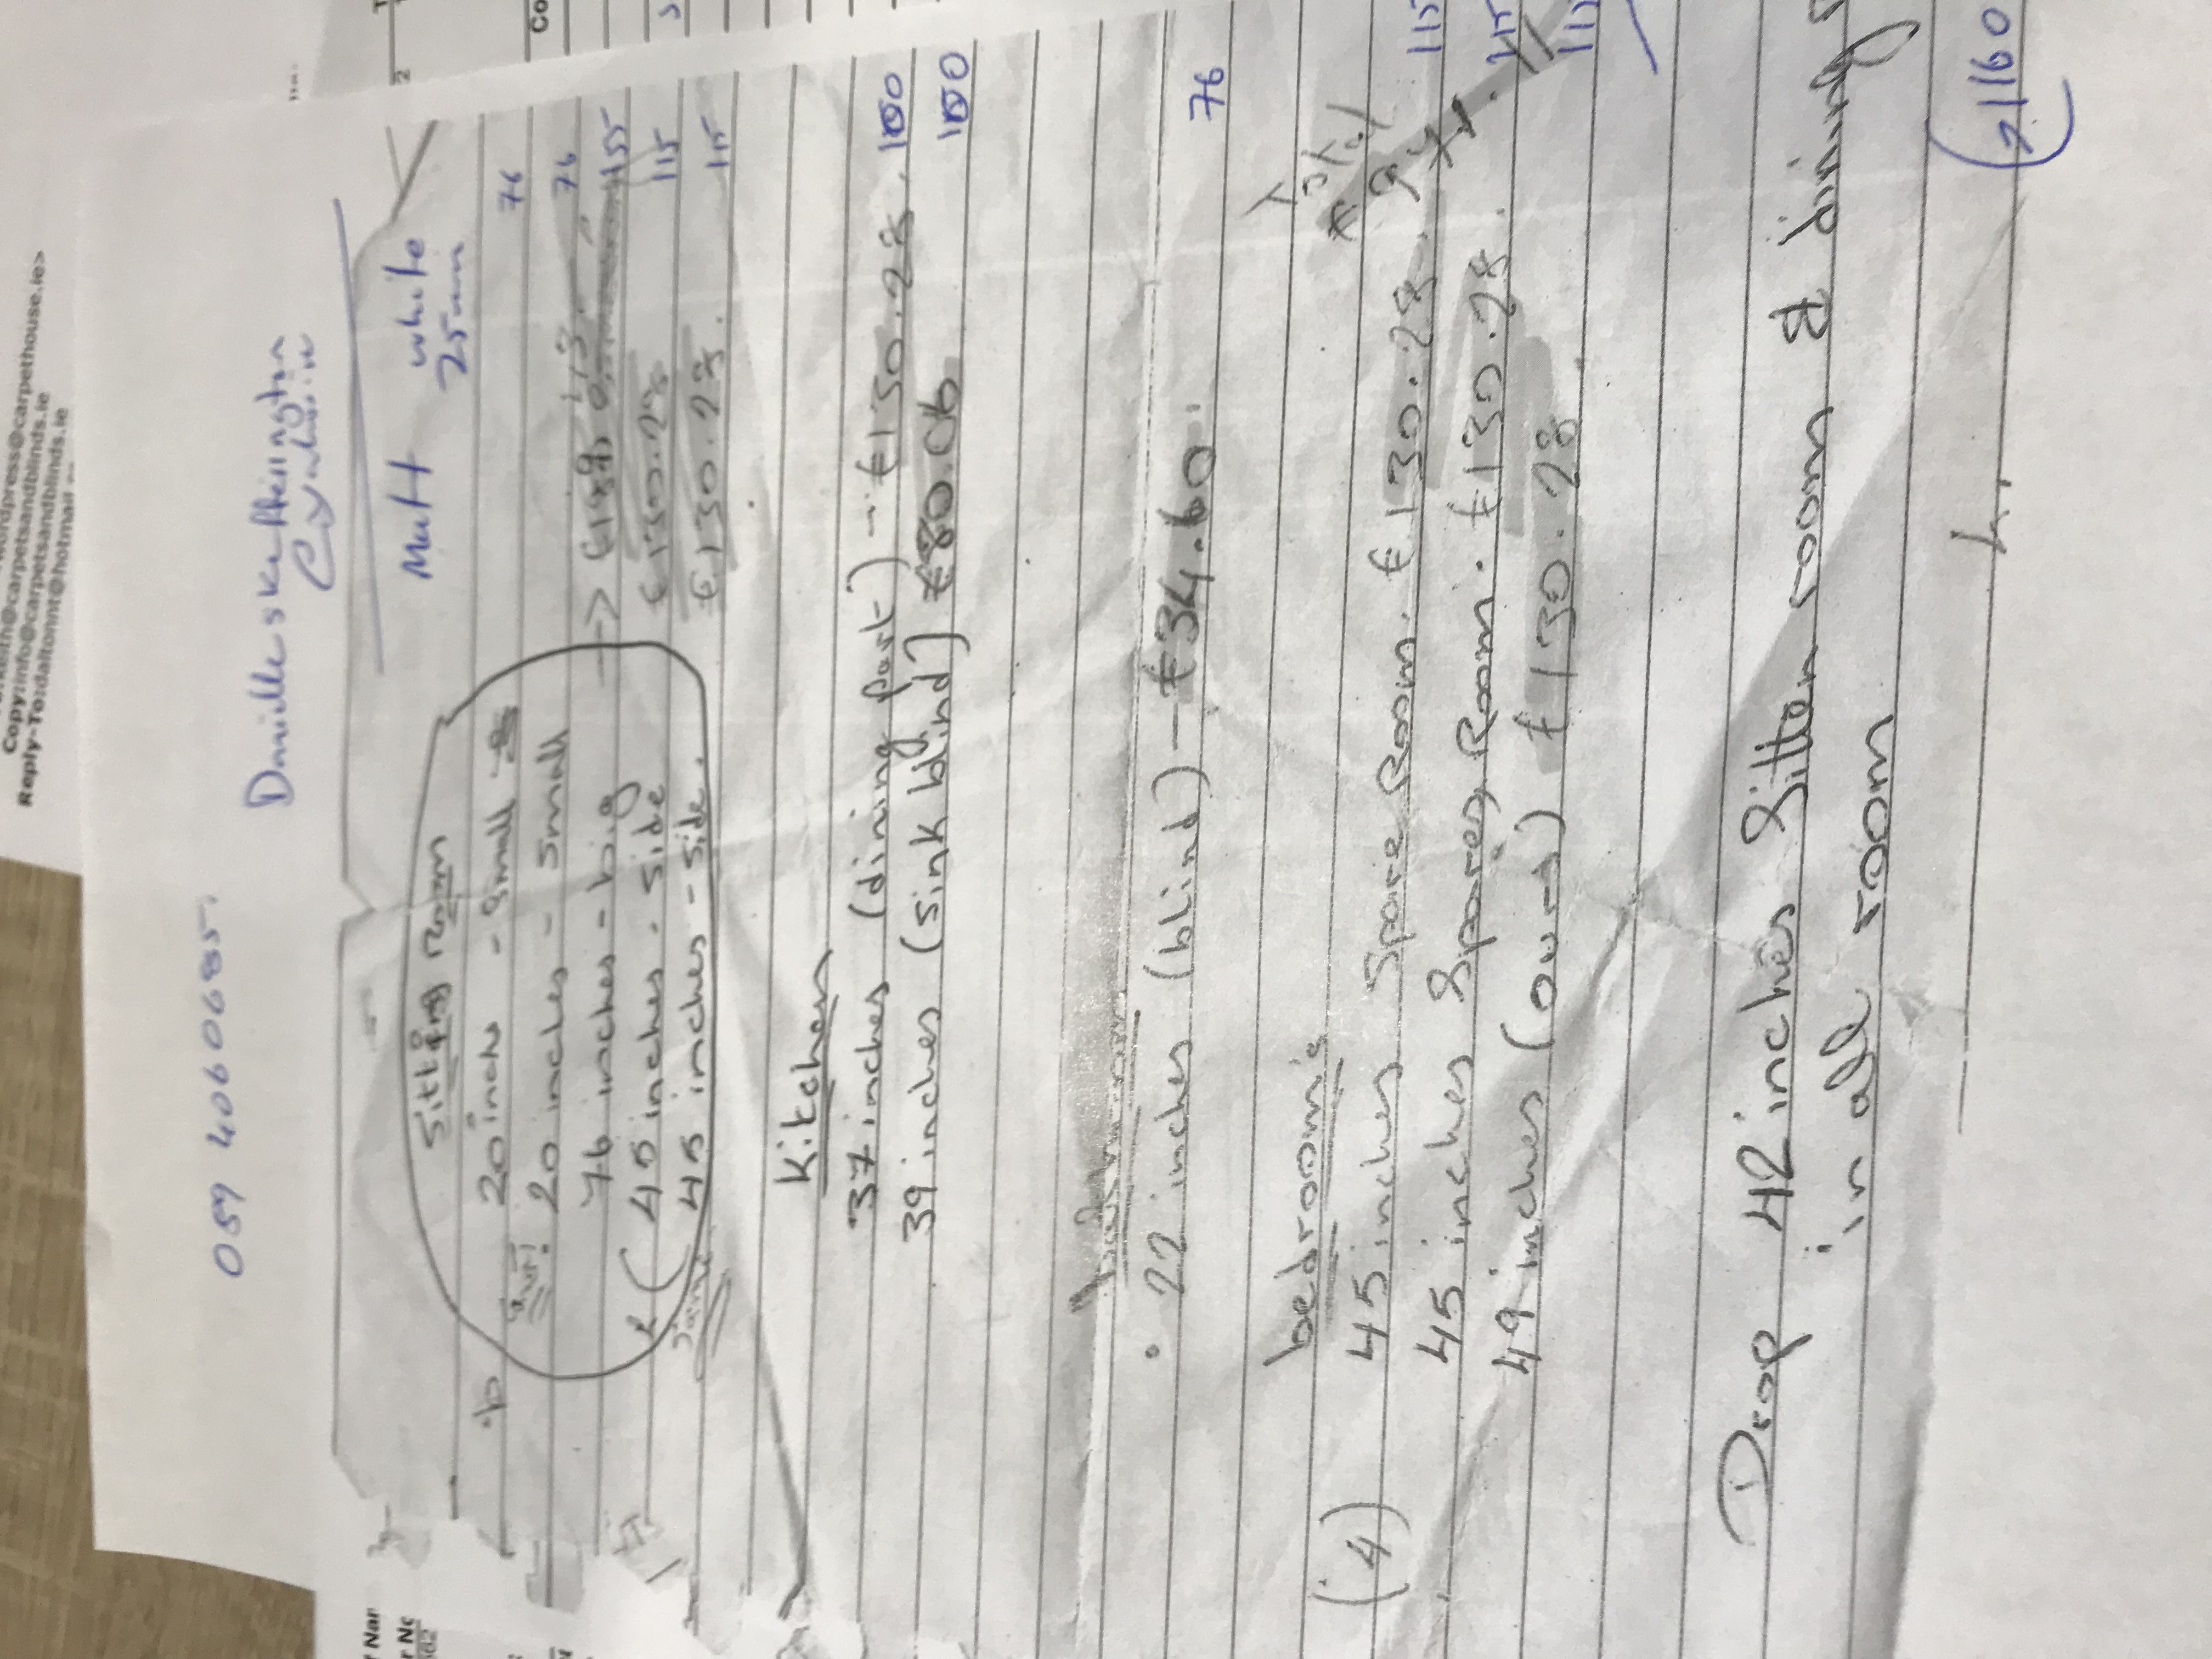 wordpress@carpethouse.ie>
Copy:info@carpetsandblinds.ie
Reply-To:daltonnt@hotmail
059 4060685.
Danielle skeffington
Matt white
25mm
Sitting Room
20 inch - Small 76
20 inches - Small 76
76 inches - big 155
45 inches - Side €130.28 115
45 inches - Side. €130.28. 115
Kitchen
37 inches (dining part) - €130.28. 100
39 inches (Sink blind) €80.06 100
bathroom
22 inches (blind) - €34.60. 76
Total
bedroom's
(4)
45 inches Spare Room. €130.28 115
45 inches Spare Room. €130.28. 115
49 inches (ours) €130.28. 115
Drop 42 inches Sitten room & dining
in all room
1160